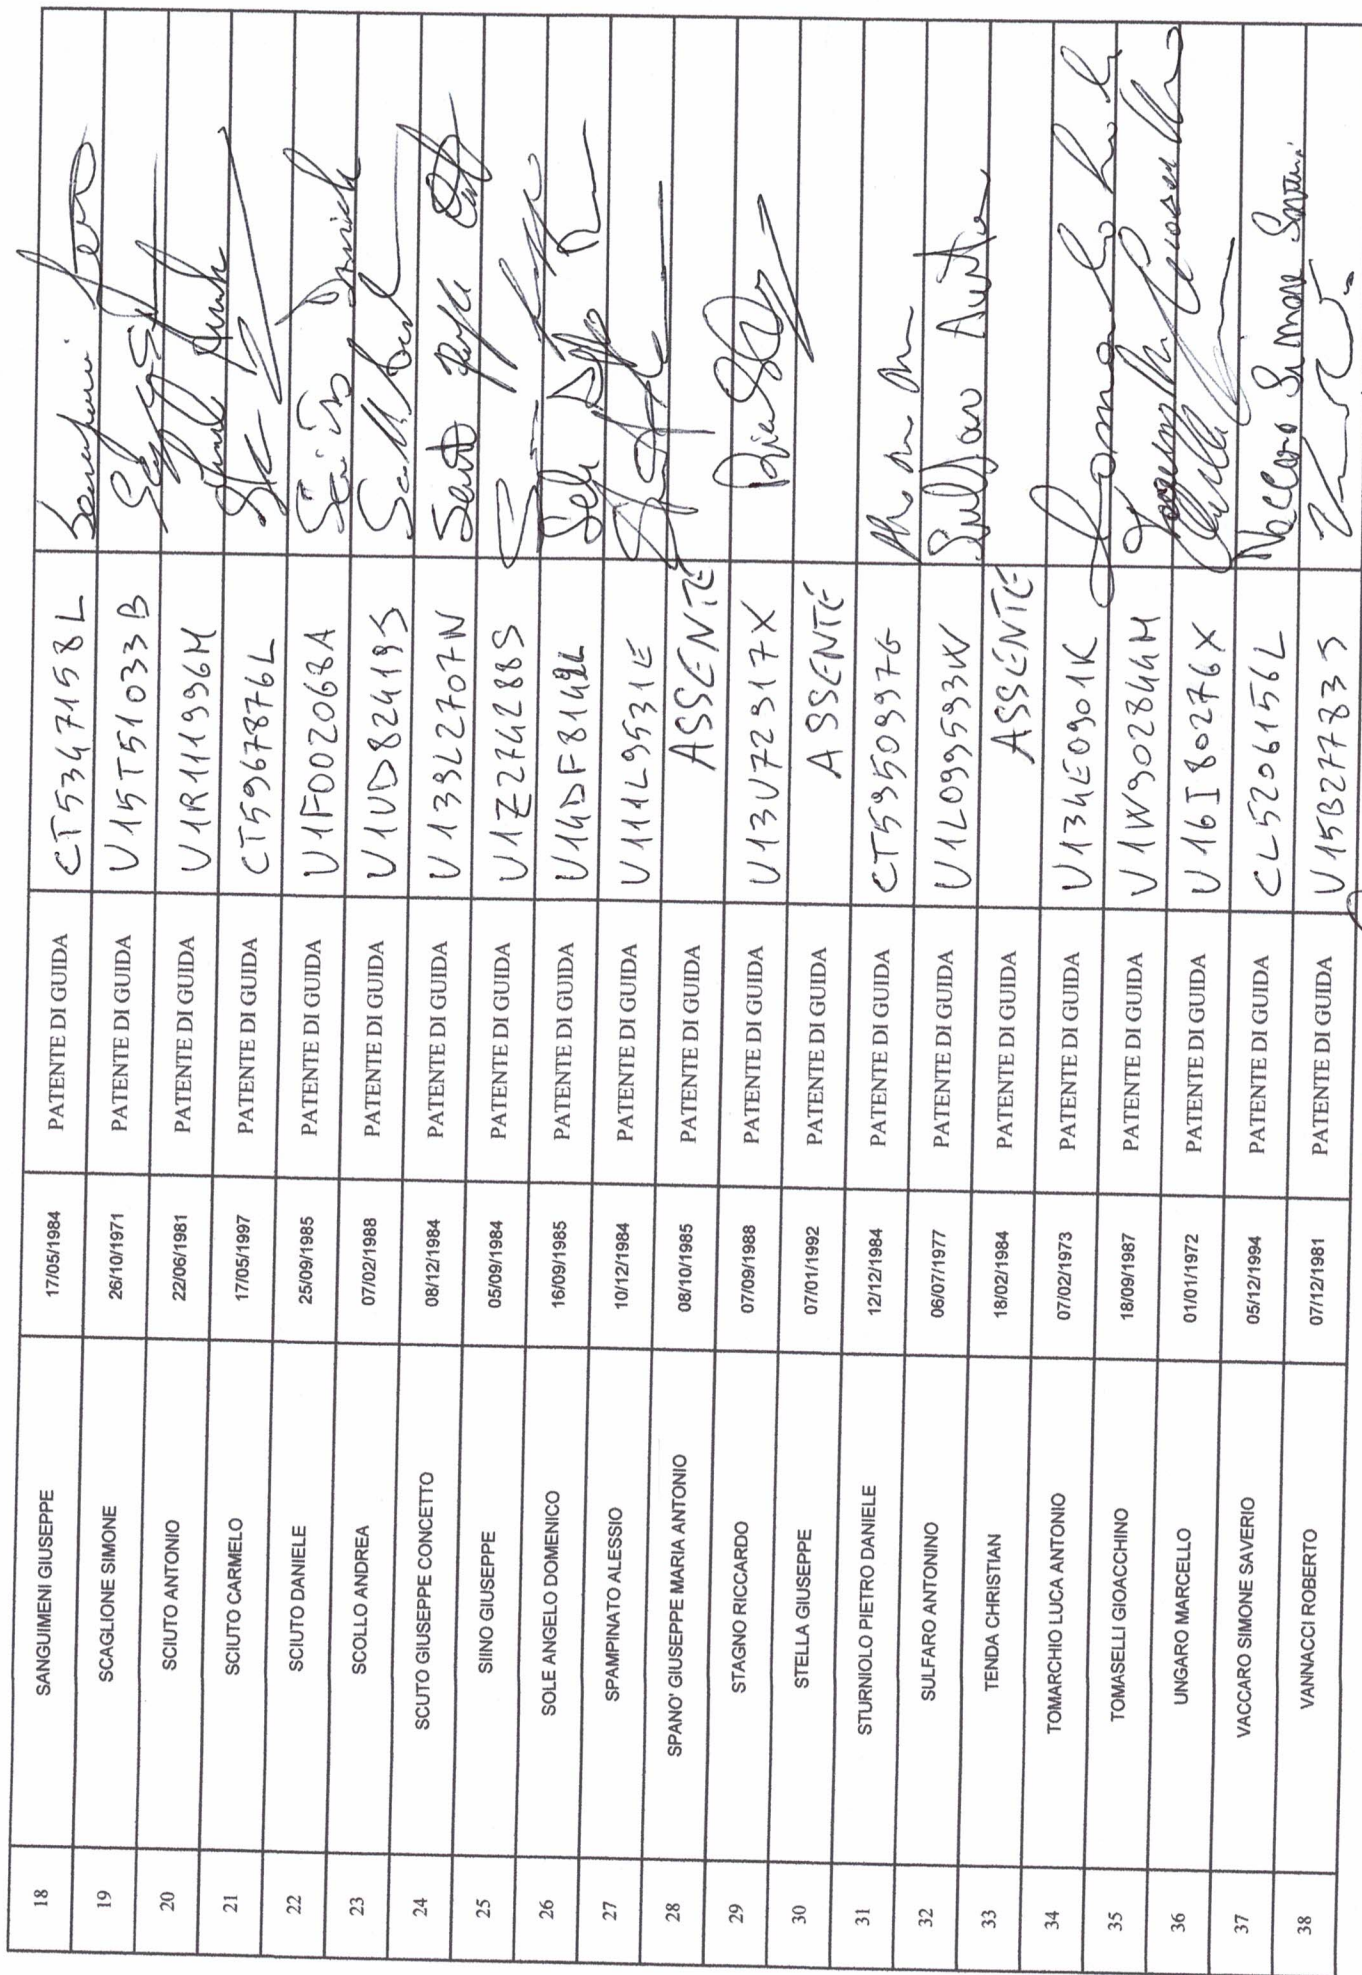 18 SANGUIMENI GIUSEPPE 17/05/1984 PATENTE DI GUIDA CT5347158L
19 SCAGLIONE SIMONE 26/10/1971 PATENTE DI GUIDA U15T51033B
20 SCIUTO ANTONIO 22/06/1981 PATENTE DI GUIDA U1R111996M
21 SCIUTO CARMELO 17/05/1997 PATENTE DI GUIDA CT5967876L
22 SCIUTO DANIELE 25/09/1985 PATENTE DI GUIDA U1F002068A
23 SCOLLO ANDREA 07/02/1988 PATENTE DI GUIDA U1UD82419S
24 SCUTO GIUSEPPE CONCETTO 08/12/1984 PATENTE DI GUIDA U139L2707N
25 SIINO GIUSEPPE 05/09/1984 PATENTE DI GUIDA U1Z274288S
26 SOLE ANGELO DOMENICO 16/09/1985 PATENTE DI GUIDA
27 SPAMPINATO ALESSIO 10/12/1984 PATENTE DI GUIDA U111L9531E
28 SPANO' GIUSEPPE MARIA ANTONIO 08/10/1985 PATENTE DI GUIDA ASSENTE
29 STAGNO RICCARDO 07/09/1988 PATENTE DI GUIDA U13U72917X
30 STELLA GIUSEPPE 07/01/1992 PATENTE DI GUIDA ASSENTE
31 STURNIOLO PIETRO DANIELE 12/12/1984 PATENTE DI GUIDA CT5950997G
32 SULFARO ANTONINO 06/07/1977 PATENTE DI GUIDA U1L099593W
33 TENDA CHRISTIAN 18/02/1984 PATENTE DI GUIDA ASSENTE
34 TOMARCHIO LUCA ANTONIO 07/02/1973 PATENTE DI GUIDA U134E0901K
35 TOMASELLI GIOACCHINO 18/09/1987 PATENTE DI GUIDA U1W902844M
36 UNGARO MARCELLO 01/01/1972 PATENTE DI GUIDA U16I80276X
37 VACCARO SIMONE SAVERIO 05/12/1994 PATENTE DI GUIDA CL5206156L Vaccaro Simone
38 VANNACCI ROBERTO 07/12/1981 PATENTE DI GUIDA U15B27783S